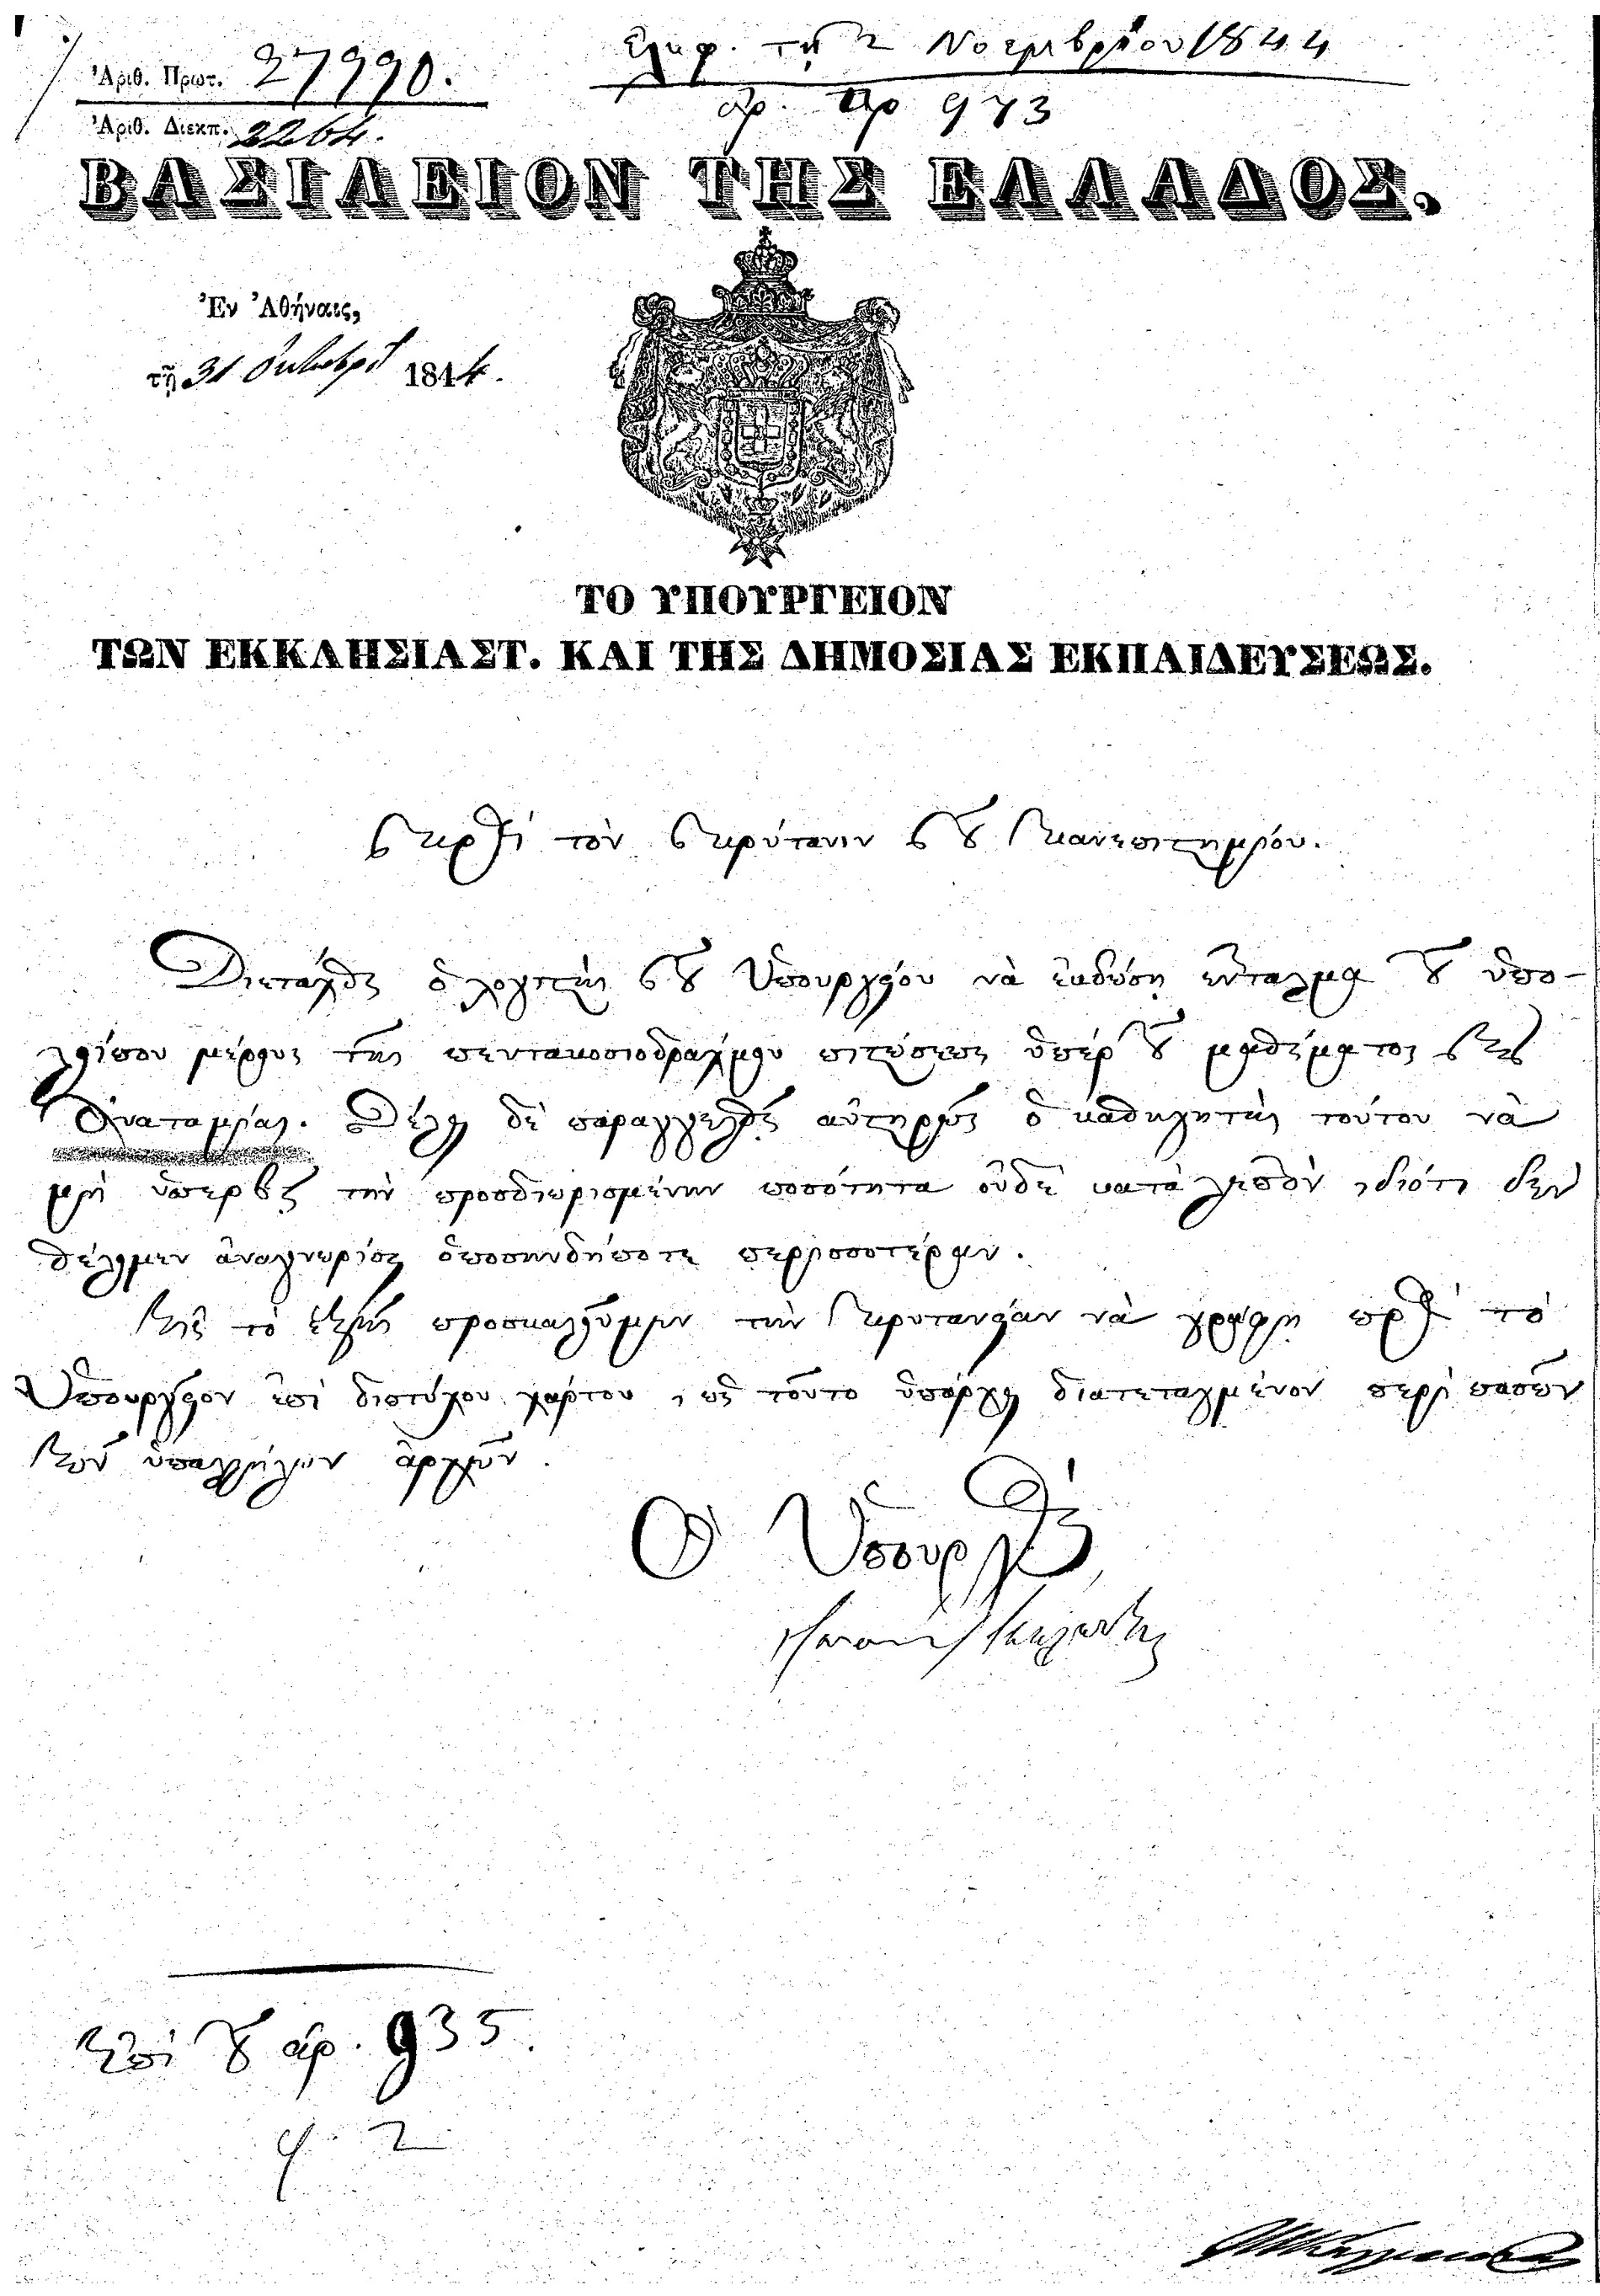 Ἐλήφ. τῇ 2 Νοεμβρίου 1844
Ἀριθ. Πρωτ. 27990.
ἀρ. πρ 973
Ἀριθ. Διεκπ. 2264.
ΒΑΣΙΛΕΙΟΝ ΤΗΣ ΕΛΛΑΔΟΣ.
Ἐν Ἀθήναις,
τῇ 31 Ὀκτωβρίου 1844.
ΤΟ ΥΠΟΥΡΓΕΙΟΝ
ΤΩΝ ΕΚΚΛΗΣΙΑΣΤ. ΚΑΙ ΤΗΣ ΔΗΜΟΣΙΑΣ ΕΚΠΑΙΔΕΥΣΕΩΣ.
Πρὸς τὸν Πρύτανιν τοῦ Πανεπιστημίου.
Διετάχθη ὁ λογιστὴς τοῦ Ὑπουργείου νὰ ἐκδώσῃ ἔνταλμα τοῦ ὑπο-
λοίπου μέρους τῆς πεντακοσιοδράχμου πιστώσεως ὑπὲρ τοῦ μαθήματος τῆς
Ἀνατομίας. Θέλει δὲ παραγγελθῆ αὐστηρῶς ὁ καθηγητὴς τούτου νὰ
μὴ ὑπερβῇ τὴν προσδιωρισμένην ποσότητα οὐδὲ κατὰ λεπτὸν, διότι δὲν
θέλομεν ἀναγνωρίσει ὁποσηνδήποτε περισσοτέραν.
Εἰς τὸ ἑξῆς προσκαλοῦμεν τὴν Πρυτανείαν νὰ γράφῃ πρὸς τὸ
Ὑπουργεῖον ἐπὶ διστήλου χάρτου, ὡς τοῦτο ὑπάρχει διατεταγμένον περὶ πασῶν
τῶν ὑπαλλήλων ἀρχῶν.
Ὁ Ὑπουργὸς
Ἐπὶ τοῦ ἀρ. 935.
φ. 2